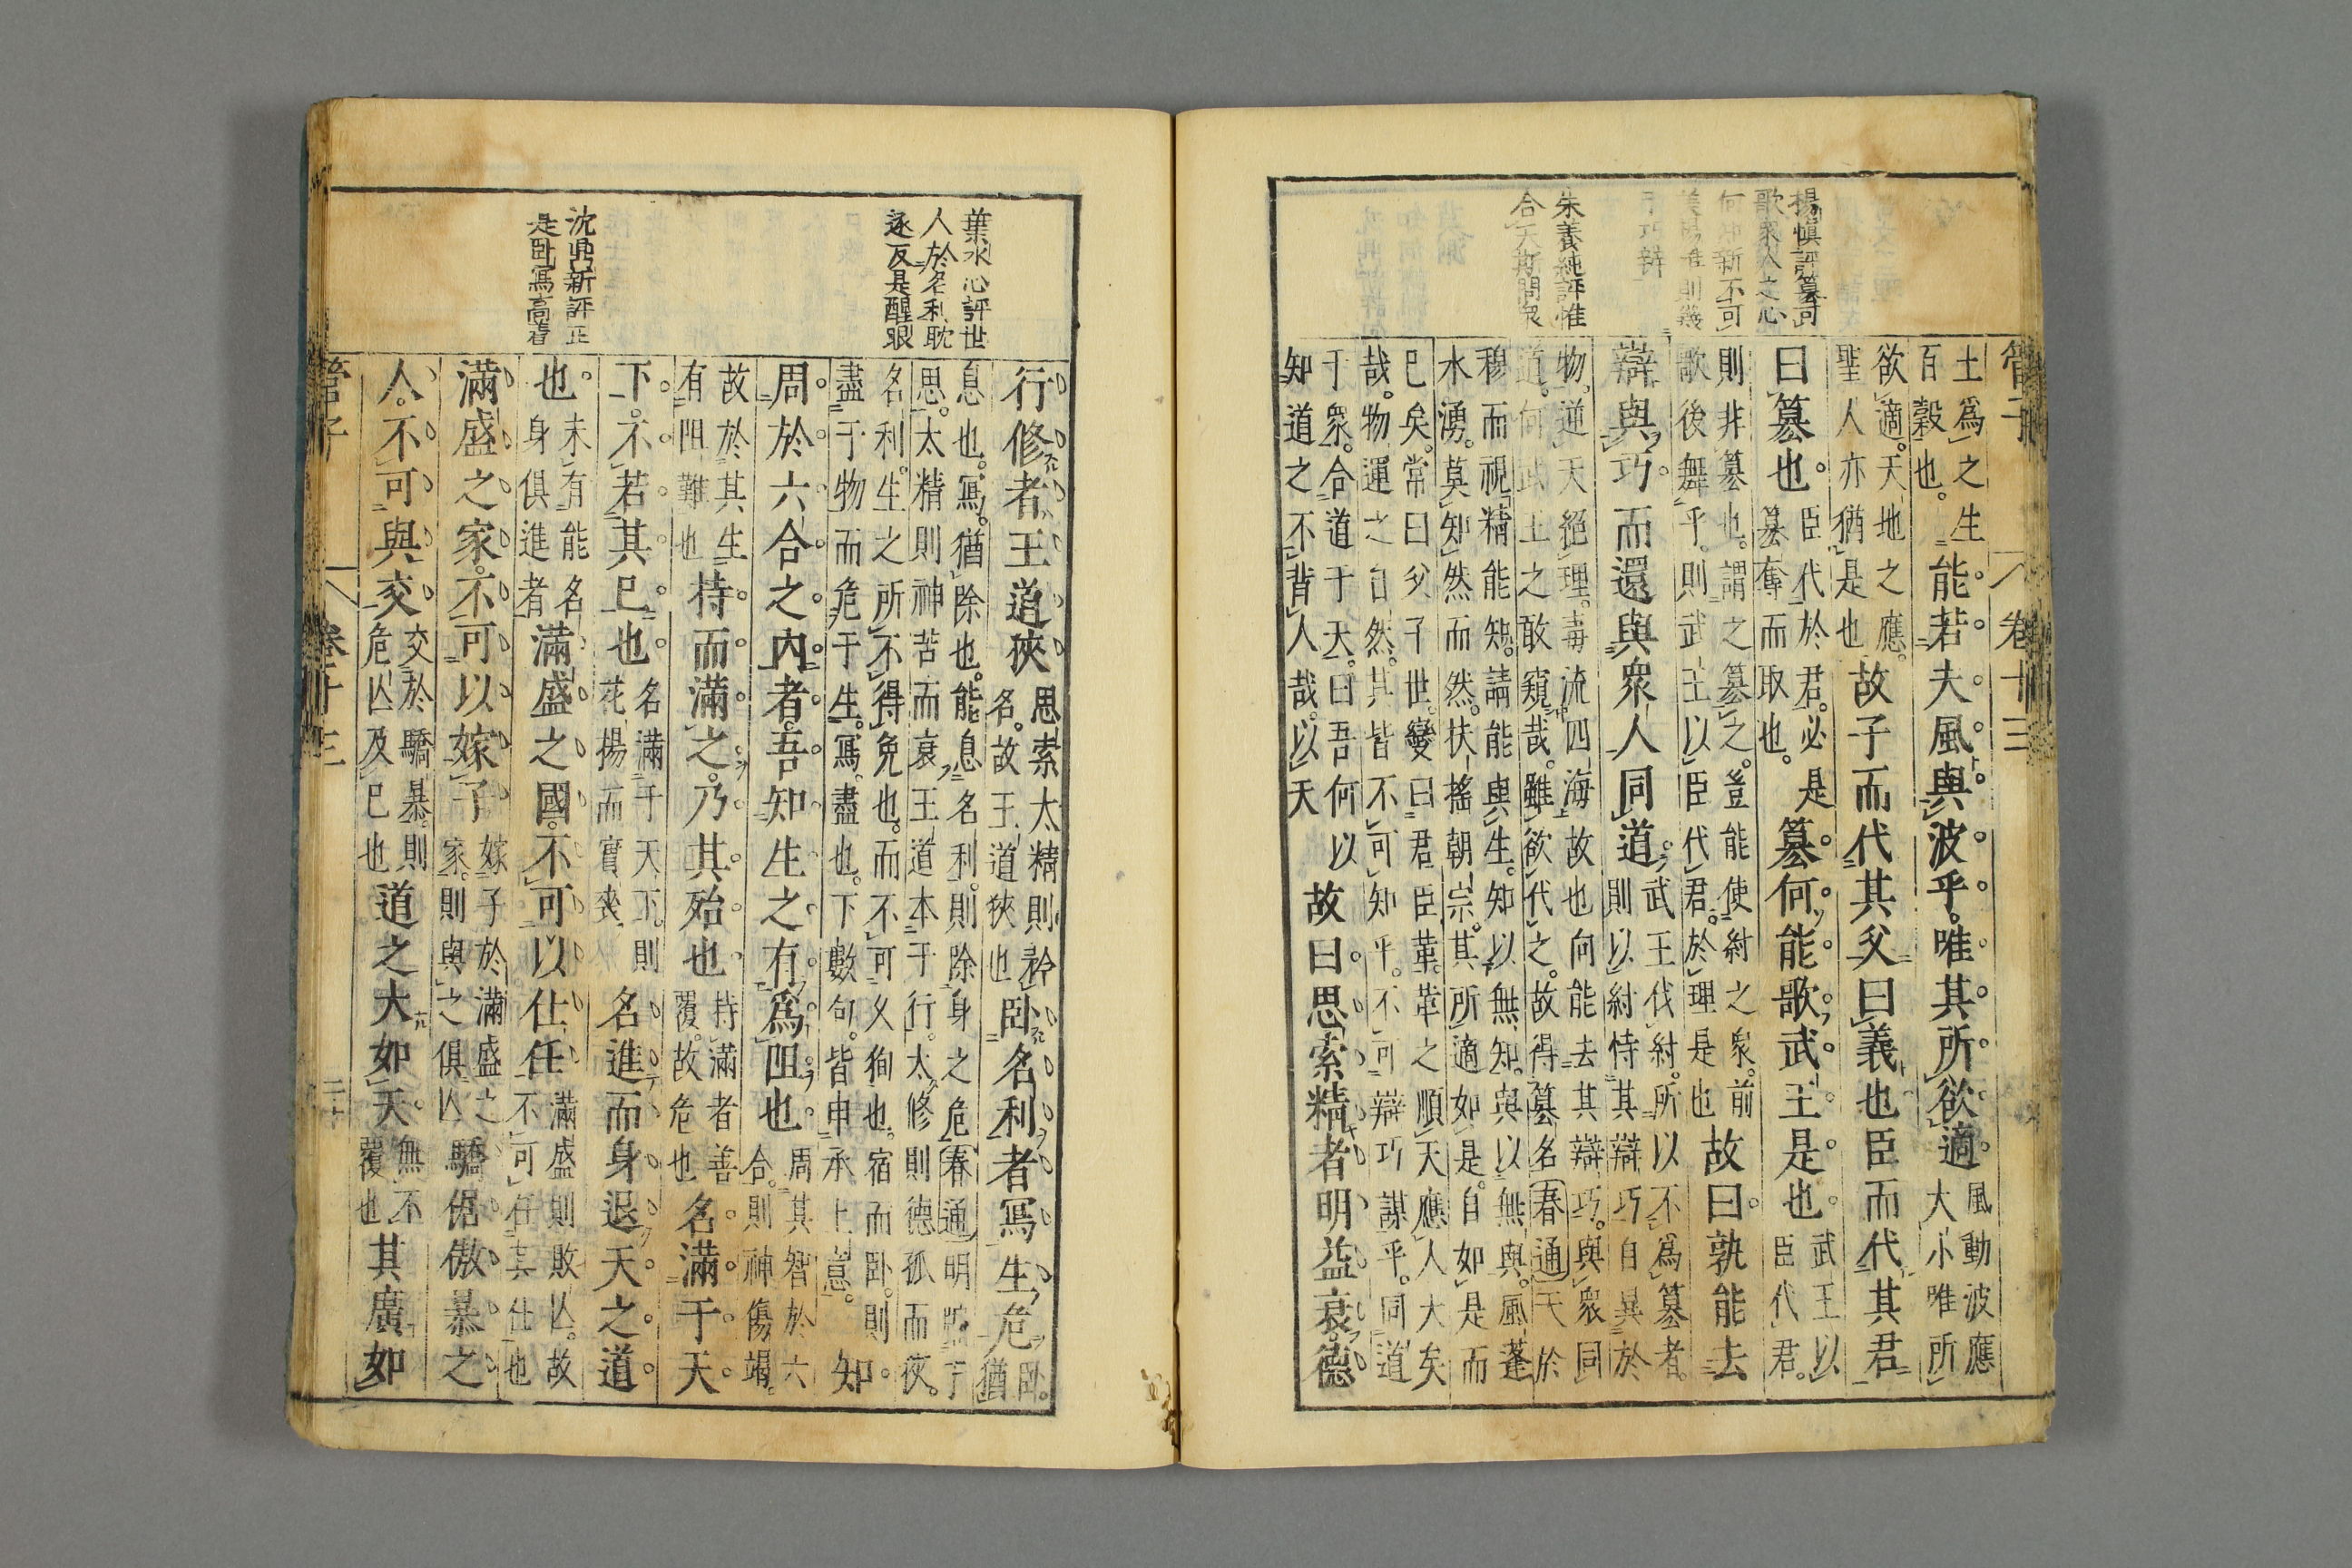 管子
卷十三
楊慎評篡可
歌衆人之心
何也新不可
朱養純評惟
合天斯同衆
土爲之生
百穀也。
能若夫風與波乎。唯其所欲適。
風動波應
大小唯所
欲適。天地之應。
聖人亦猶是也
故子而代其父曰義也臣而代其君
曰篡也。
臣代於君。必是
篡奪而取也。
篡何能歌。武王是也。
武王以
臣代君。
則非篡也。謂之篡之。豈能使紂之衆。前
歌後舞乎。則武王以臣代君。於理是也
故曰。孰能去
辯與巧。而還與衆人同道。
武王伐紂。所以不爲篡者。
則以紂恃其辯巧自異於
物。逆天絕理。毒流四海故也向能去其辯巧。與衆同
道。何武王之敢窺哉。雖欲代之。故得篡名春通天於
穆而視精能知。請能與生。知以無知。與以無與。風蓬
水湧。莫知然而然。扶搖朝宗。其所適如是。自如是而
已矣。常曰父子世。變曰君臣革。革之順天應人大矣
哉。物運之自然。其皆不可知乎。不可辯巧謀乎。同道
于衆。合道于天。曰吾何以
知道之不背人哉。以天
故曰。思索精者明益衰。德
葉水心評世
人於名利耽
逐反是醒眼
沈鼎新評正
是臥寫高着
行修者王道狹
思索太精則矜
名。故王道狹也
臥名利者寫生危
臥。
猶
息也。寫。猶除也。能息名利。則除身之危春通明臨于
思。太精則神苦而衰王道本于行。太修則德孤而狹。
名利。生之所不得免也。而不可以徇也。宿而臥。則
盡于物而危于生。寫。盡也。下數句。皆申承上意。
知
周於六合之內者。吾知生之有爲阻也。
周其智於六
合。則神傷竭。
故於其生
有阻難也
持而滿之。乃其殆也
持滿者善
覆。故危也
名滿于天
下。不若其已也
名滿于天下。則
花揚而實喪
名進而身退天之道
也。
未有能名
身俱進者
滿盛之國。不可以仕任
滿盛則敗亡。故
不可任其仕也
滿盛之家。不可以嫁子
嫁子於滿盛之
家。則與之俱亡
驕倨傲暴之
人。不可與交
交於驕暴。則
危亡及已也
道之大如天。
無不
覆也
其廣如
管子
卷十三
二十